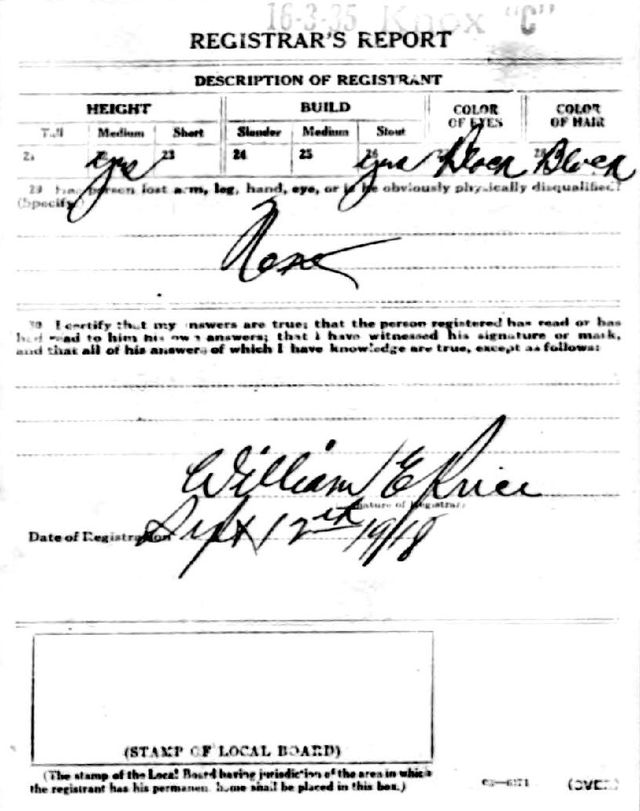 16-3-35 Knox "C"
REGISTRAR'S REPORT
DESCRIPTION OF REGISTRANT
HEIGHT BUILD COLOR OF EYES COLOR OF HAIR
Tall Medium Short Slender Medium Stout
21 22 23 24 25 26 27 28
yes yes Black Black
29 Has person lost arm, leg, hand, eye, or is he obviously physically disqualified?
(Specify.)
None
30 I certify that my answers are true; that the person registered has read or has
had read to him his own answers; that I have witnessed his signature or mark,
and that all of his answers of which I have knowledge are true, except as follows:
William E
(Signature of Registrar)
Date of Registration Sept 12th 1918
(STAMP OF LOCAL BOARD)
(The stamp of the Local Board having jurisdiction of the area in which
the registrant has his permanent home shall be placed in this box.)
(OVER)